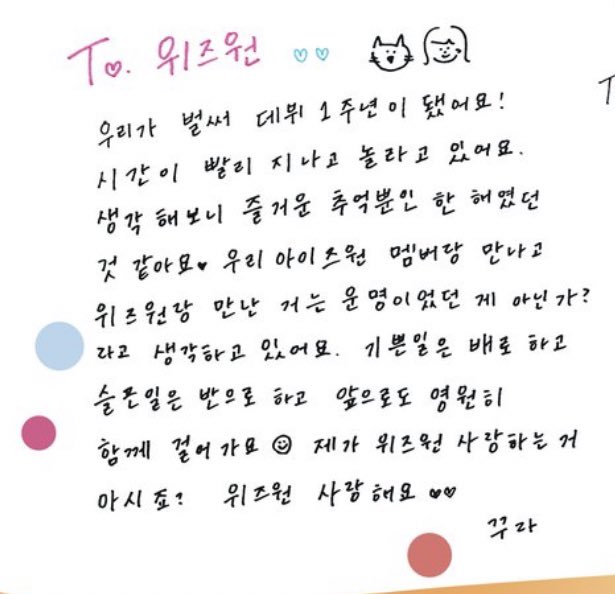 To. 위즈원 ♡♡
우리가 벌써 데뷔 1주년이 됐어요!
시간이 빨리 지나고 놀라고 있어요.
생각해보니 즐거운 추억뿐인 한 해였던
것 같아요♥ 우리 아이즈원 멤버랑 만나고
위즈원랑 만난 거는 운명이었던 게 아닌가?
라고 생각하고 있어요. 기쁜일은 배로 하고
슬픈일은 반으로 하고 앞으로도 영원히
함께 걸어가요 ☺ 제가 위즈원 사랑하는 거
아시죠? 위즈원 사랑해요 ♥♥
꾸라